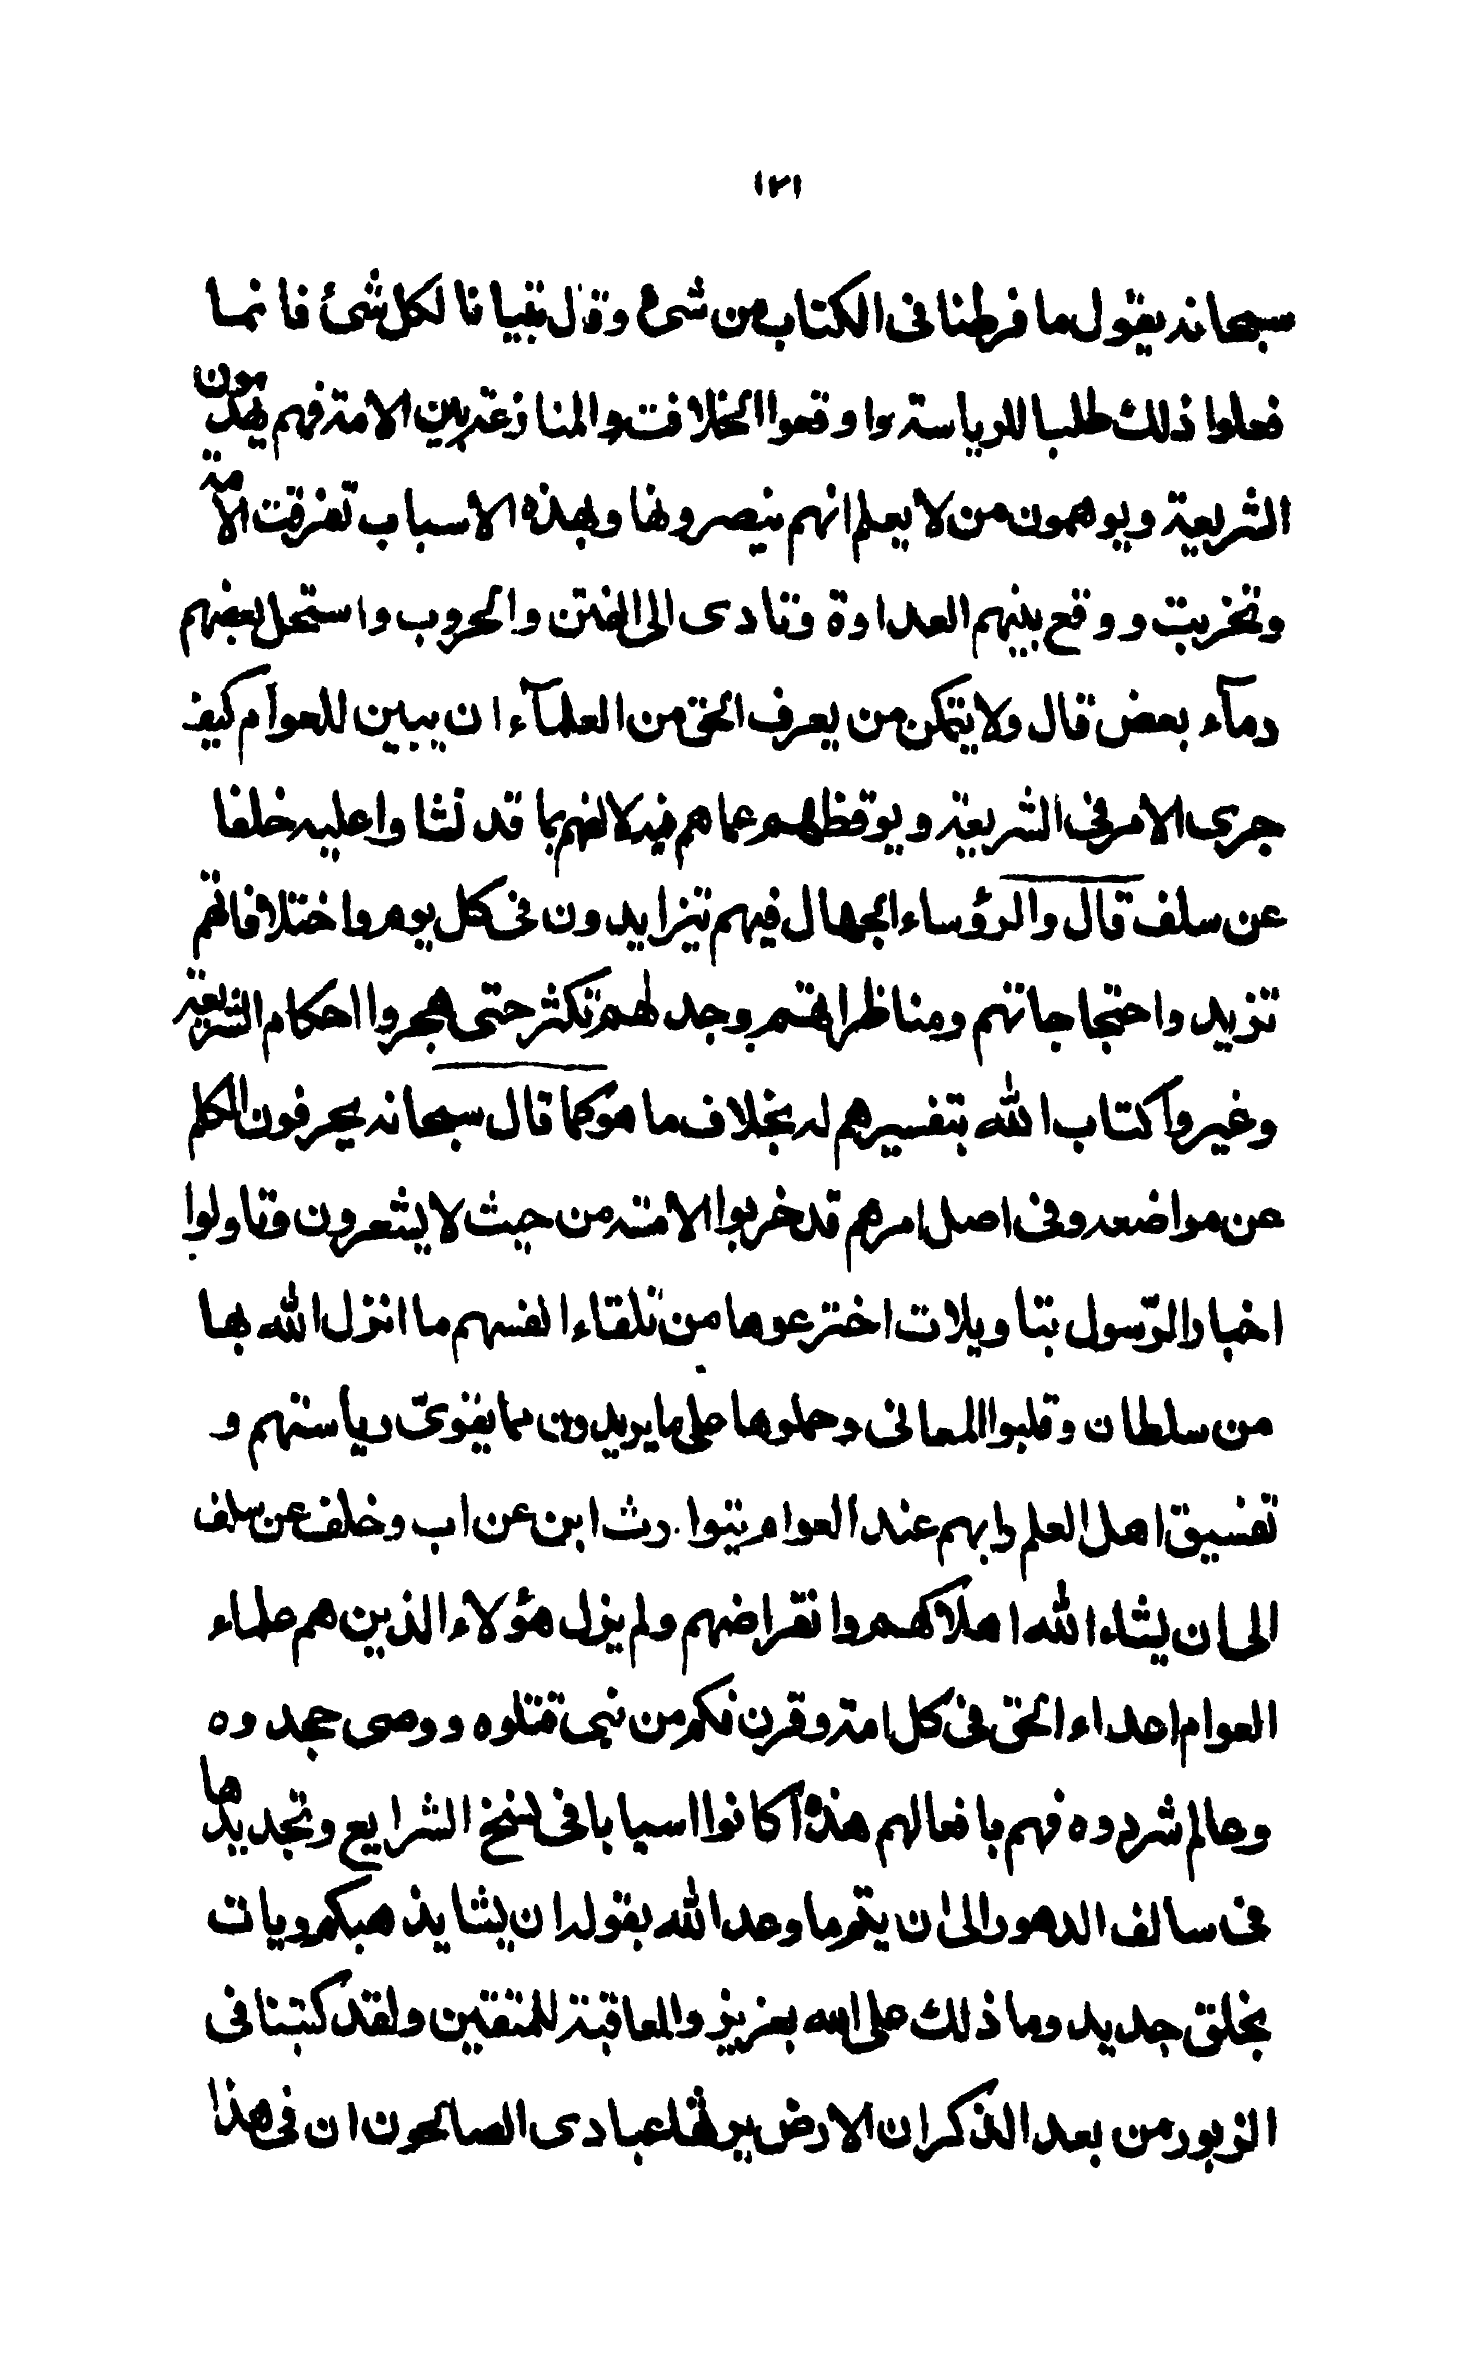 ١٢١
سبحانه يقول ما فرطنا فى الكتاب من شئ وقال تبيانا لكل شئ فانما
فعلوا ذلك طلبا للرياسة واوقعوا الخلاف والمنازعة بين الامة فهم يهدمون
الشريعة ويوهمون من لا يعلم انهم ينصرونها وبهذه الاسباب تفرقت الامة
وتخربت ووقع بينهم العداوة وتادى الى الفتن والحروب واستحل بعضهم
دمآء بعض قال ولا يتمكن من يعرف الحق من العلمآء ان يبين للعوام كيف
جرى الامر فى الشريعة ويوقظهم عما هم فيه لانهم بما قد نشاوا عليه خلفا
عن سلف قال والرؤساء الجهال فيهم يتزايدون فى كل يوم واختلافاتهم
تزيد واحتجاجاتهم ومناظراتهم وجدلهم تكثر حتى هجروا احكام الشريعة
وغيروا كتاب الله بتفسيرهم له بخلاف ما هو كما قال سبحانه يحرفون الكلم
عن مواضعه وفى اصل امرهم قد خربوا الامة من حيث لا يشعرون وتاولوا
اخبار الرّسول بتاويلات اخترعوها من تلقاء انفسهم ما انزل الله بها
من سلطان وقلبوا المعانى وحملوها على ما يريدون مما يقوىّ رياستهم و
تفسيق اهل العلم دابهم عند العوام يتوارث ابن عن اب وخلف عن سلف
الى ان يشاء الله اهلاكهم وانقراضهم ولم يزل هؤلاء الذين هم علماء
العوام اعداء الحق فى كل امة وقرن فكم من نبى قتلوه ووصى جحدوه
وعالم شردوه فهم بافعالهم هذه كانوا اسبابا فى نسخ الشرايع وتجديدها
فى سالف الدهور الى ان يتم ما وعد الله بقوله ان يشا يذهبكم ويات
بخلق جديد وما ذلك على الله بعزيز والعاقبة للمتقين ولقد كتبنا فى
الزبور من بعد الذكر ان الارض يرثها عبادى الصالحون ان فى هذا